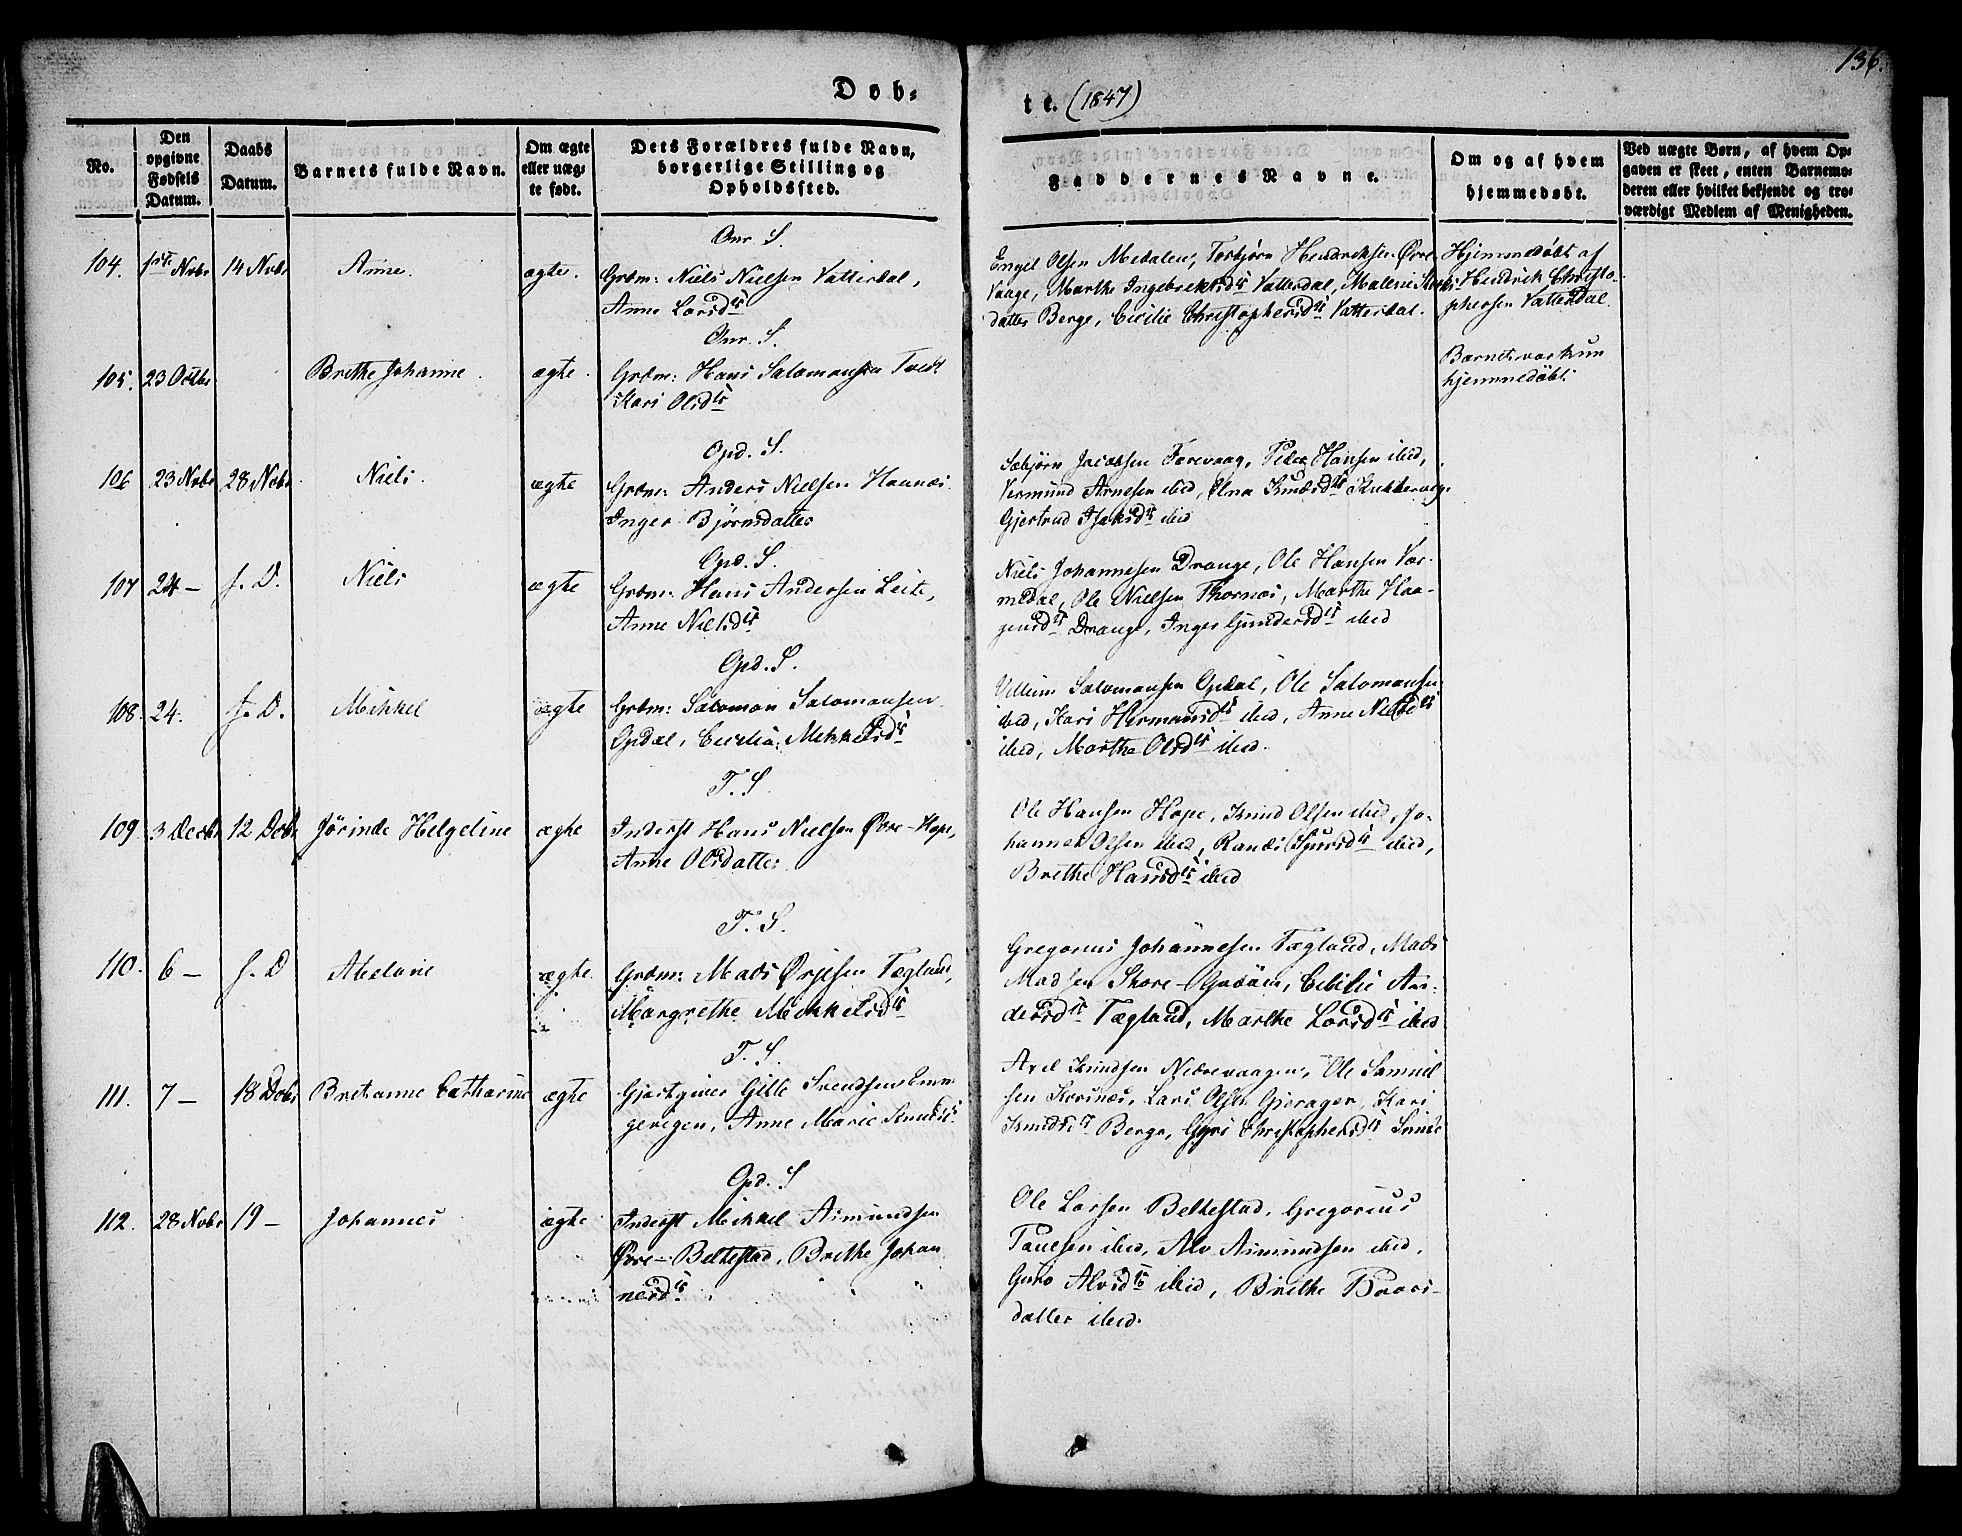 136.
Døb-
te. (1847)
No.
Den opgivne Fødsels Datum.
Daabs Datum.
Barnets fulde Navn.
Om ægte eller uæg-te født.
Dets Forældres fulde Navn, borgerlige Stilling og Opholdssted.
Faddernes Navne.
Om og af hvem hjemmedøbt.
Ved uægte Børn, af hvem Op-
gaven er skeet, enten Barnemo-
deren eller hvilket bekjendt og tro-
værdigt Medlem af Menigheden.
Onr. S.
104. 1ste Nvbr 14 Nvbr Anne. ægte. Grdm: Niels Nielsen Vatterdal,
Anne Larsdtr
Engel Olsen Medalen, Torbjörn Hendriksen Øvre-
Vaage, Marthe Ingebrektsdtr Vatterdal, Malene
datter Berge, Cicilie Christophersdtr Vatterdal.
Hjemmedöbt af
Hendrick Christo-
phersen Vatterdal
Onr. S.
105. 23 Octbr Brethe Johanne. ægte. Grdm: Hans Salamonsen Tvedt
Kari Olsdtr
Barnet var kun
hjemmedöbt.
Opd. S.
106 23 Nvbr 28 Nvbr Niels. ægte Grdm: Anders Nielsen Haanæs
Inger Björnsdatter
Sæbjörn Jacobsen Færevaag, Peder Hansen ibid,
Vermund Arnesen ibid, Elna Knudsdtr
Gjertrud Isaksdtr ibid
Opd. S.
107 24 – s. D. Niels ægte Grdm: Hans Andersen Leite,
Anne Nielsdtr
Niels Johannesen Drange, Ole Hansen Var-
medal, Ole Nielsen Thornæs, Marthe Haa-
gensdtr Drange, Inger Gundersdtr ibid
Opd. S.
108. 24. s. D. Mikkel ægte Grdm: Salomon Salomonsen
Opdal, Cecilia Mikkelsdtr
Villum Salomonsen Opdal, Ole Salomonsen
ibid, Kari Hermansdtr ibid, Anne Nielsdtr
ibid, Marthe Olsdtr ibid.
T. S
109. 3 Decbr 12 Dcbr Jørinde Helgeline ægte Inderst Hans Nielsen Øvre-Hope,
Anne Olsdatter
Ole Hansen Hope, Knud Olsen ibid, Jo-
hannes Olsen ibid, Randi Sjursdtr ibid,
Brethe Hansdtr ibid
T. S.
110. 6 – s. D Abelone ægte. Grdm: Mads Ørjesen Tægland,
Margrethe Mikkelsdtr
Gregorius Johannesen Tægland, Mads
Madsen Store-Godöen, Cecilie An-
dersdtr Tægland, Marthe Larsdtr ibid
T. S.
111. 7 – 18 Dcbr Bretanne Catharine ægte Gjestgiver Gitle Svendsen Eng-
gevigen, Anne Marie Knudsdtr
Axel Knudsen Nedrevaagen, Ole Samuel
sen Korsnæs, Lars Olsen Gjerager, Kari
Knudsdtr Berge, Guri Christophersdtr
Opd. S
112. 28 Nvbr 19 – Johannes ægte Inderst Mikkel Asmundsen
Øvre-Beltestad, Brethe Johan
nesdtr
Ole Larsen Beltestad, Gregorius
Paulsen ibid, Alv Asmundsen ibid,
Guro Alvsdtr ibid, Brethe Baars-
datter ibid.